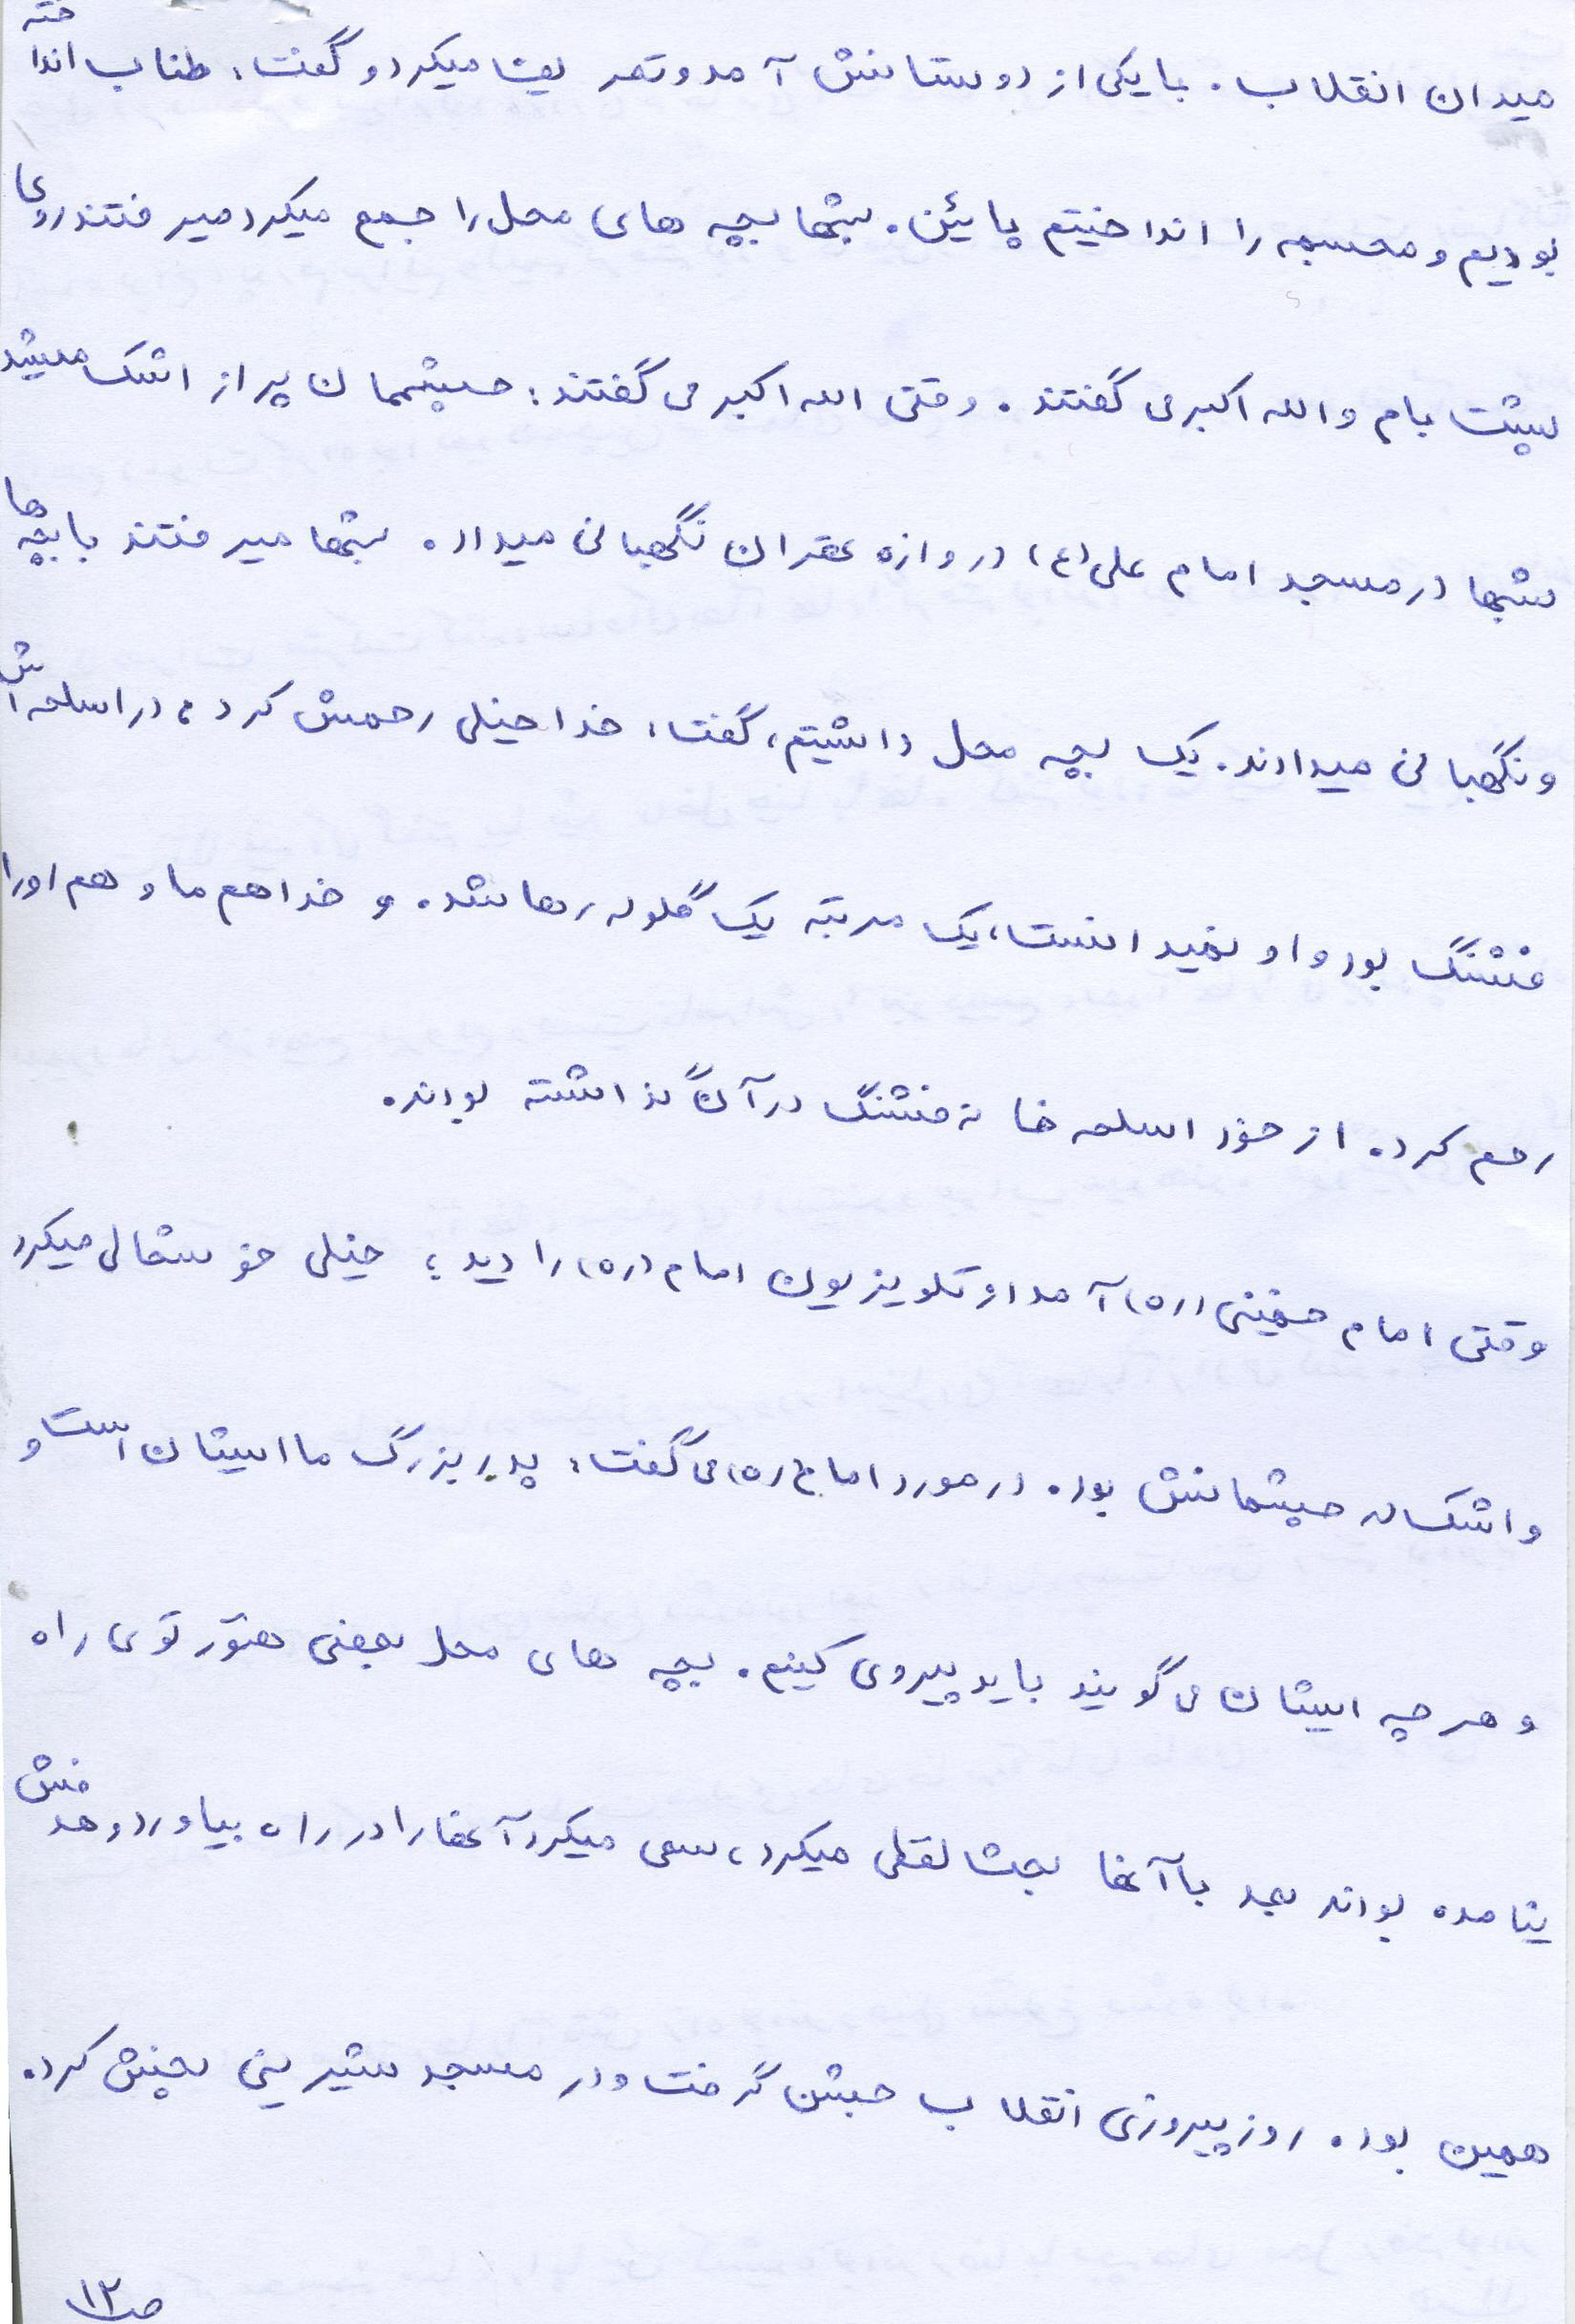 میدان انقلاب. با یکی از دوستانش آمد و تعریف میکرد و گفت: طناب انداخته
بودیم و مجسمه را انداختیم پائین. شبها بچه های محل را جمع میکرد میرفتند روی
پشت بام و الله اکبر می گفتند. وقتی الله اکبر می گفتند: چشممان پر از اشک میشد
شبها در مسجد امام علی (ع) دروازه تهران نگهبانی میداد. شبها میرفتند با بچه ها
و نگهبانی میدادند. یک بچه محل داشتیم، گفت: خدا خیلی رحمش کرد، در اسلحه اش
فشنگ بود و او نمیدانست، یک مرتبه یک گلوله رها شد. و خدا هم ما و هم او را
رحم کرد. از خود اسلحه خانه فشنگ در آن گذاشته بودند.
وقتی امام خمینی (ره) آمد از تلویزیون امام (ره) را دید؛ خیلی خوشحالی میکرد
و اشک در چشمانش بود. در مورد امام (ره) می گفت: پدر بزرگ ما ایشان است و
و هر چه ایشان می گویند باید پیروی کنیم. بچه های محل بعضی هنوز توی راه
نیامده بودند بعد با آنها بحث لفظی میکرد، سعی میکرد آنها را در راه بیاورد و هدفش
همین بود. روز پیروزی انقلاب جشن گرفت و در مسجد شیرینی پخش کرد.
ص ۱۲